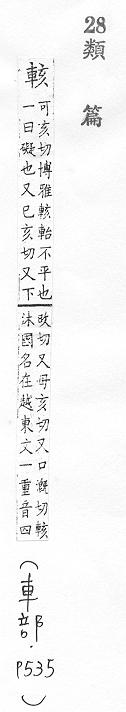 28
類篇
輆
可亥切博雅輆軩不平也
一曰礙也又已亥切又下
改切又毋亥切又口漑切輆
沐國名在越東文一重音四
(車部.P535)